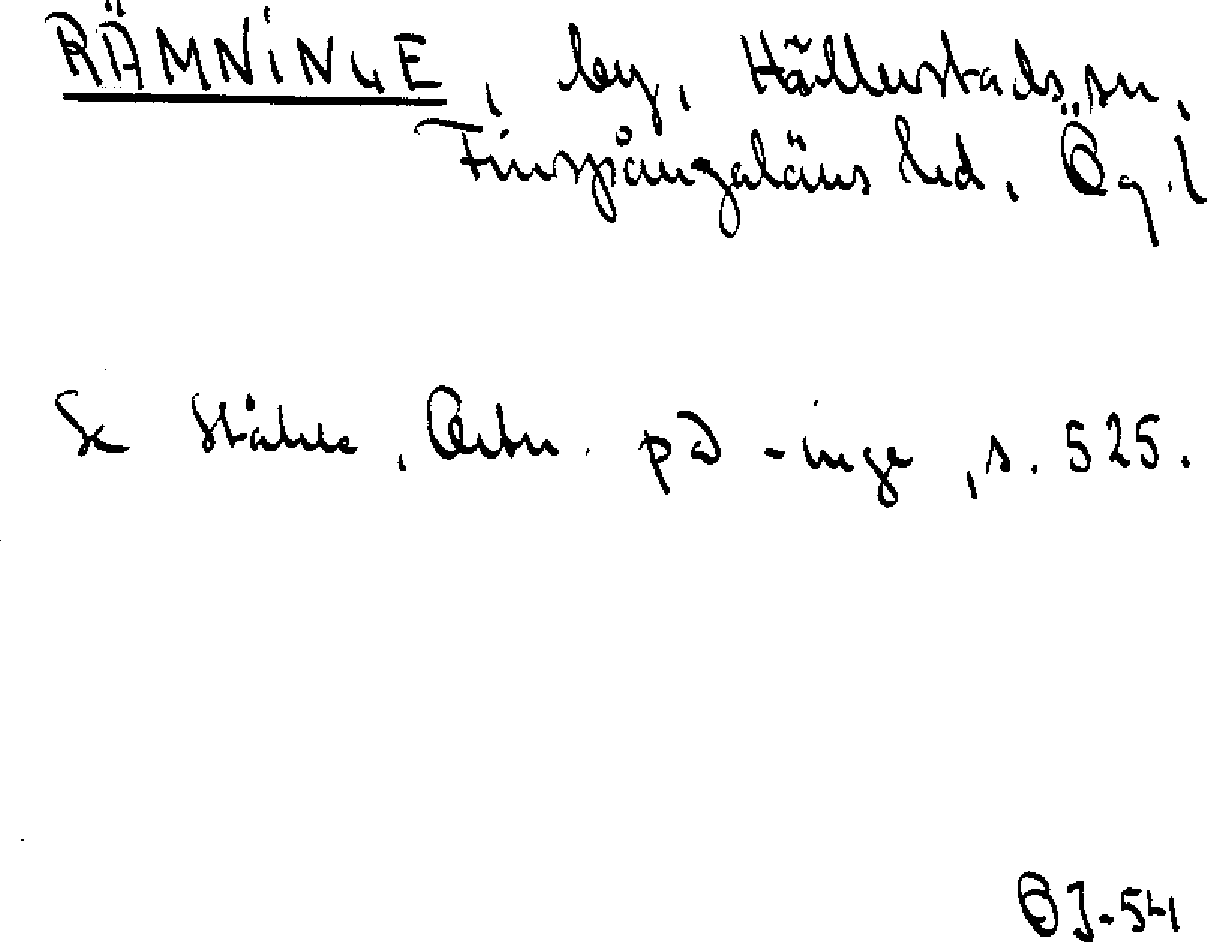 RÄMNINGE, by, Hällestads sn,
Finspångaläns hd. Ög.l
Se Ståhle, Ortn. på -inge, s. 525.